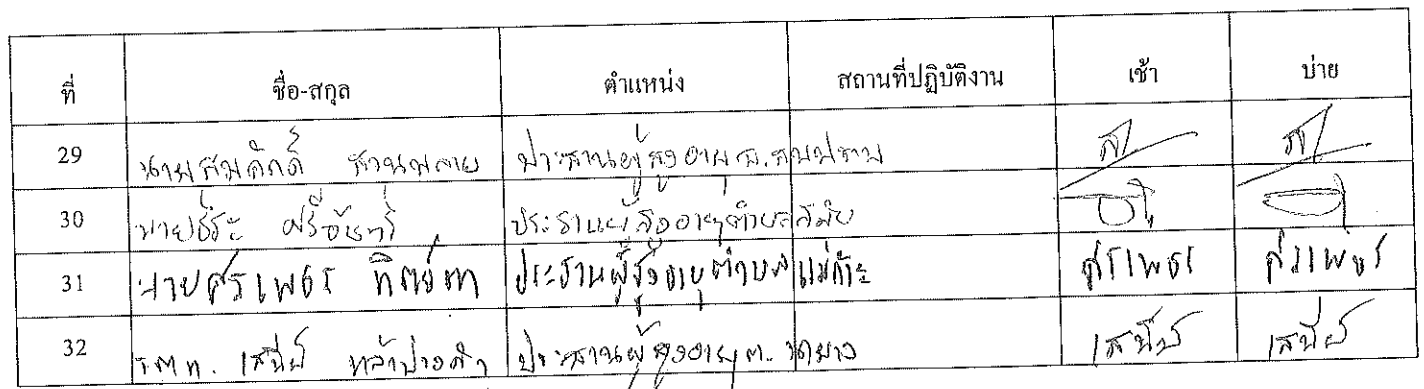 ที่ ชื่อ-สกุล ตำแหน่ง สถานที่ปฏิบัติงาน เช้า บ่าย
29 นายสมศักดิ์ ประธานผู้สูงอายุ ต.
30 นายธีระ ประธานผู้สูงอายุตำบลสมัย
31 นายศรเพชร ประธานผู้สูงอายุตำบลแม่กัวะ ศรเพชร ศรเพชร
32 รตท. เสนีย์ ประธานผู้สูงอายุ ต. เสนีย์ เสนีย์